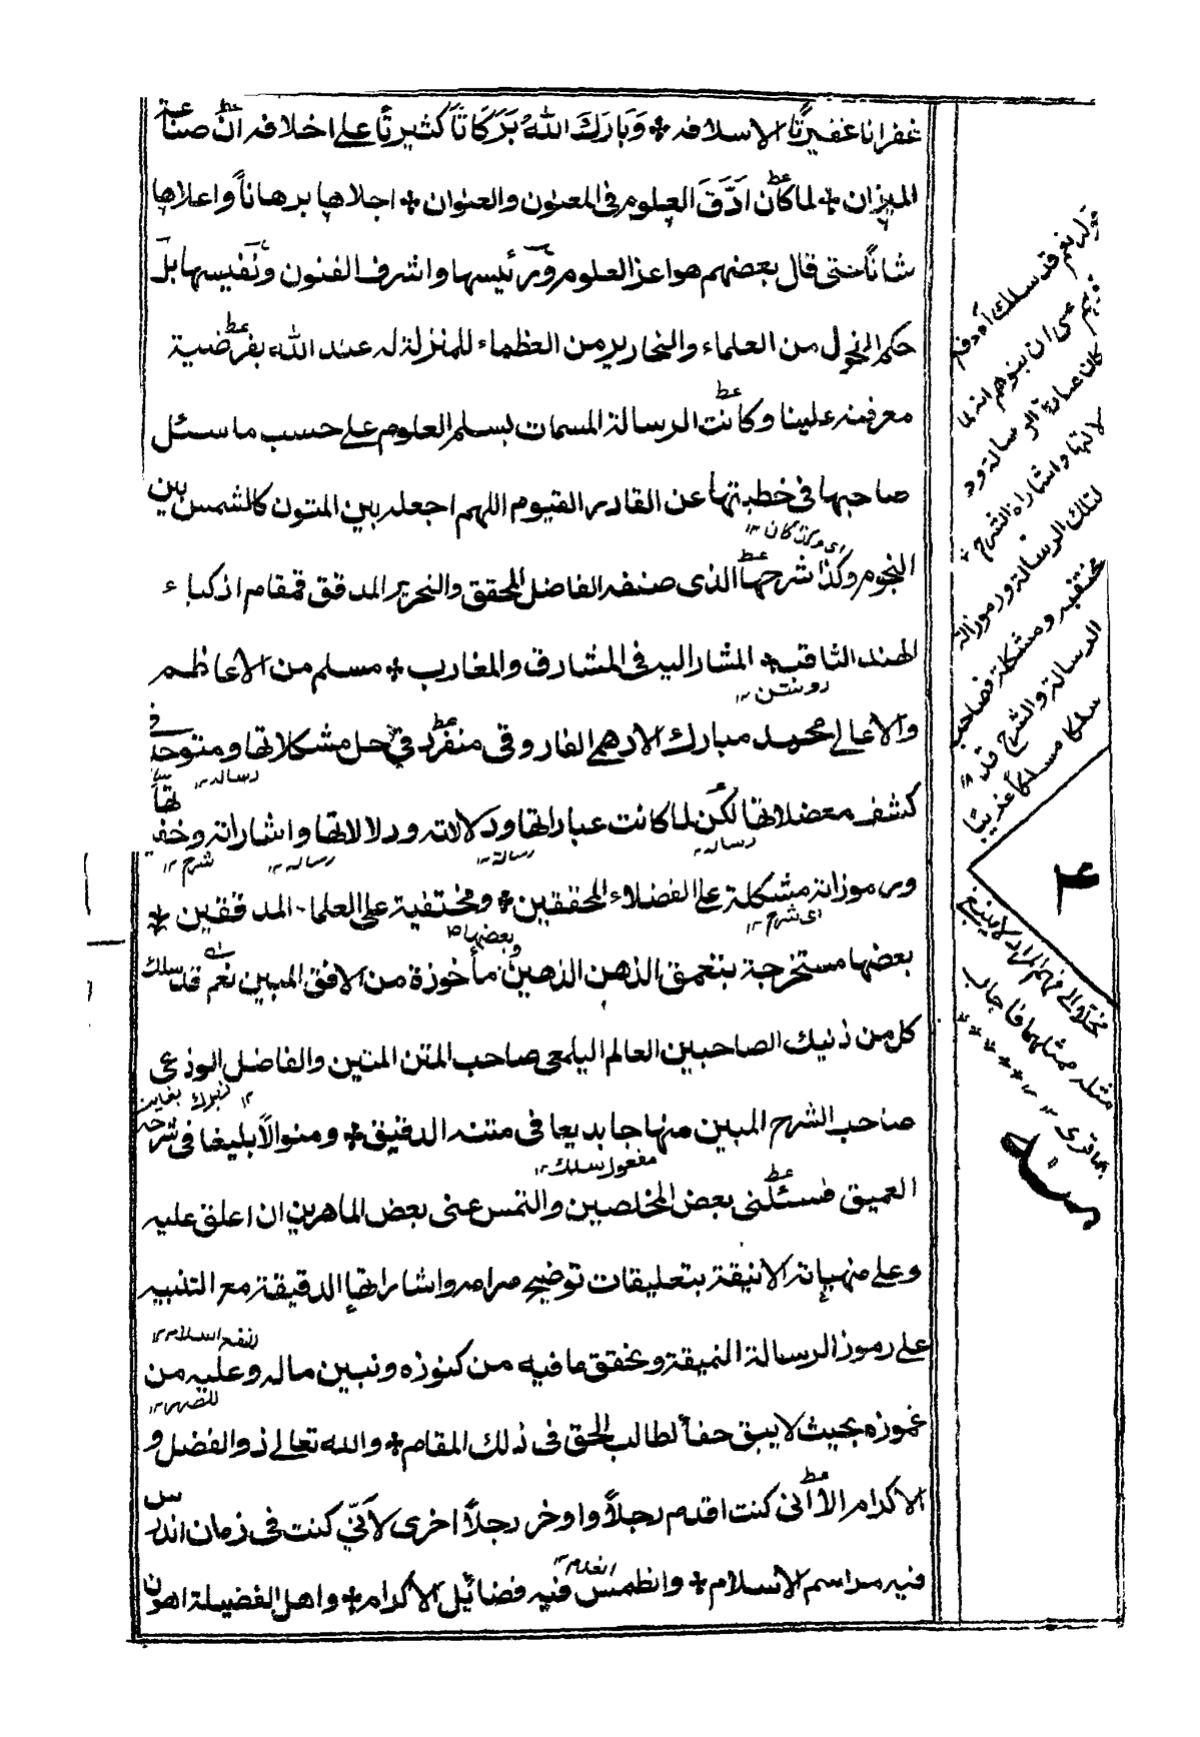 غفرانا غفيرًا لاسلافه * وَبارَكَ اللهُ بَرَكَاتًا كثيرتًا على اخلافه انّ صناعة
الميزان * لما كان ادَقَّ العلوم فى المعنون والعنوان * اجلاها برهاناً واعلاها
شاناً حتى قال بعضهم هو اعز العلوم ورئيسها واشرف الفنون ونفيسها بل
حكم الفحول من العلماء والنحارير من العظماء للمنزلة له عند الله بفرضية
معرفته علينا وكانت الرسالة المسمات بسلم العلوم على حسب ما سئل
صاحبها فى خطبتها عن القادر القيوم اللهم اجعله بين المتون كالشمس بين
اى وكذا كان ١٢
النجوم وكذا شرحها الذى صنفه الفاضل المحقق والنحرير المدقق قمقام اذكياء
الهند الثاقب * المشار اليه فى المشارق والمغارب * مسلم من الاعاظم
والاعالى محمد مبارك الادهمى الفاروقى منفرد فى حل مشكلاتها ومتوحد فى
رساله ١٢
كشف معضلاتها لكن لما كانت عباراتها ودلالاته ودلالاتها واشاراته وخفياتها
رساله رسالة ١٢ رساله ١٢ شرح ١٢
ورموزاته مشكلة على الفضلاء المحققين * ومختفية على العلماء المدققين *
اى شرح ١٢
بعضها مستخرجة بتعمق الذهن الذهين وبعضها مأخوذة من الافق المبين نعم قد سلك
كل من ذنيك الصاحبين العالم اليلمعى صاحب المتن المتين والفاضل الوذعى
صاحب الشرح المبين منهاجا بديعا فى متنه الدقيق * ومنوالًا بليغا فى شرحه
مفعول سلك ١٢
العميق فسئلنى بعض المخلصين والتمس عنى بعض الماهرين ان اعلق عليه
وعلى منهياته الانيقة بتعليقات توضيح مرامه واشاراتها الدقيقة مع التنبيه
على رموز الرسالة النميقة وتحقق ما فيه من كنوزه ونبين ماله وعليه من
غموزه بحيث لا يبق خفأ لطالب الحق فى ذلك المقام * والله تعالى ذو الفضل و
الاكرام الا انى كنت اقدم رجلاً واوخر رجلاً اخرى لانّى كنت فى زمان اندرس
انعدم ١٢
فيه مراسم الاسلام * وانطمس فيه فضائل الاكرام * واهل الفضيلة اهون
قوله نعم قد سلك آه دفع
عسى ان يتوهم انه لما
كان عبارة الرسالة ود
لالتها واشاراة الشرح
لتلك الرسالة ورموزاته
مختفية ومشكلة فصاحب
الرسالة والشرح قد
سلكا مسلكا غريبًا
۴
مثله مثلهما فاجاب
بما ترى ١٢
منه